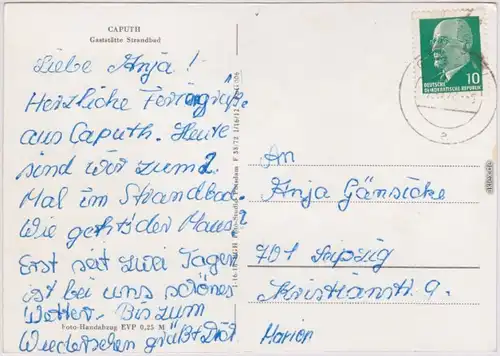 CAPUTH
Gaststätte Strandbad
Liebe Anja!
Herzliche Feriengrüße
aus Caputh. Heute
sind wir zum 2.
Mal im Strandbad.
Wie geht's der Maus?
Erst seit zwei Tagen
ist bei uns schönes
Wetter. Bis zum
Wiedersehen grüßt Dich
Marion
Foto-Handabzug EVP 0,25 M
10
DEUTSCHE
DEMOKRATISCHE REPUBLIK
An
Anja Gänsicke
701 Leipzig
Christianstr. 9.